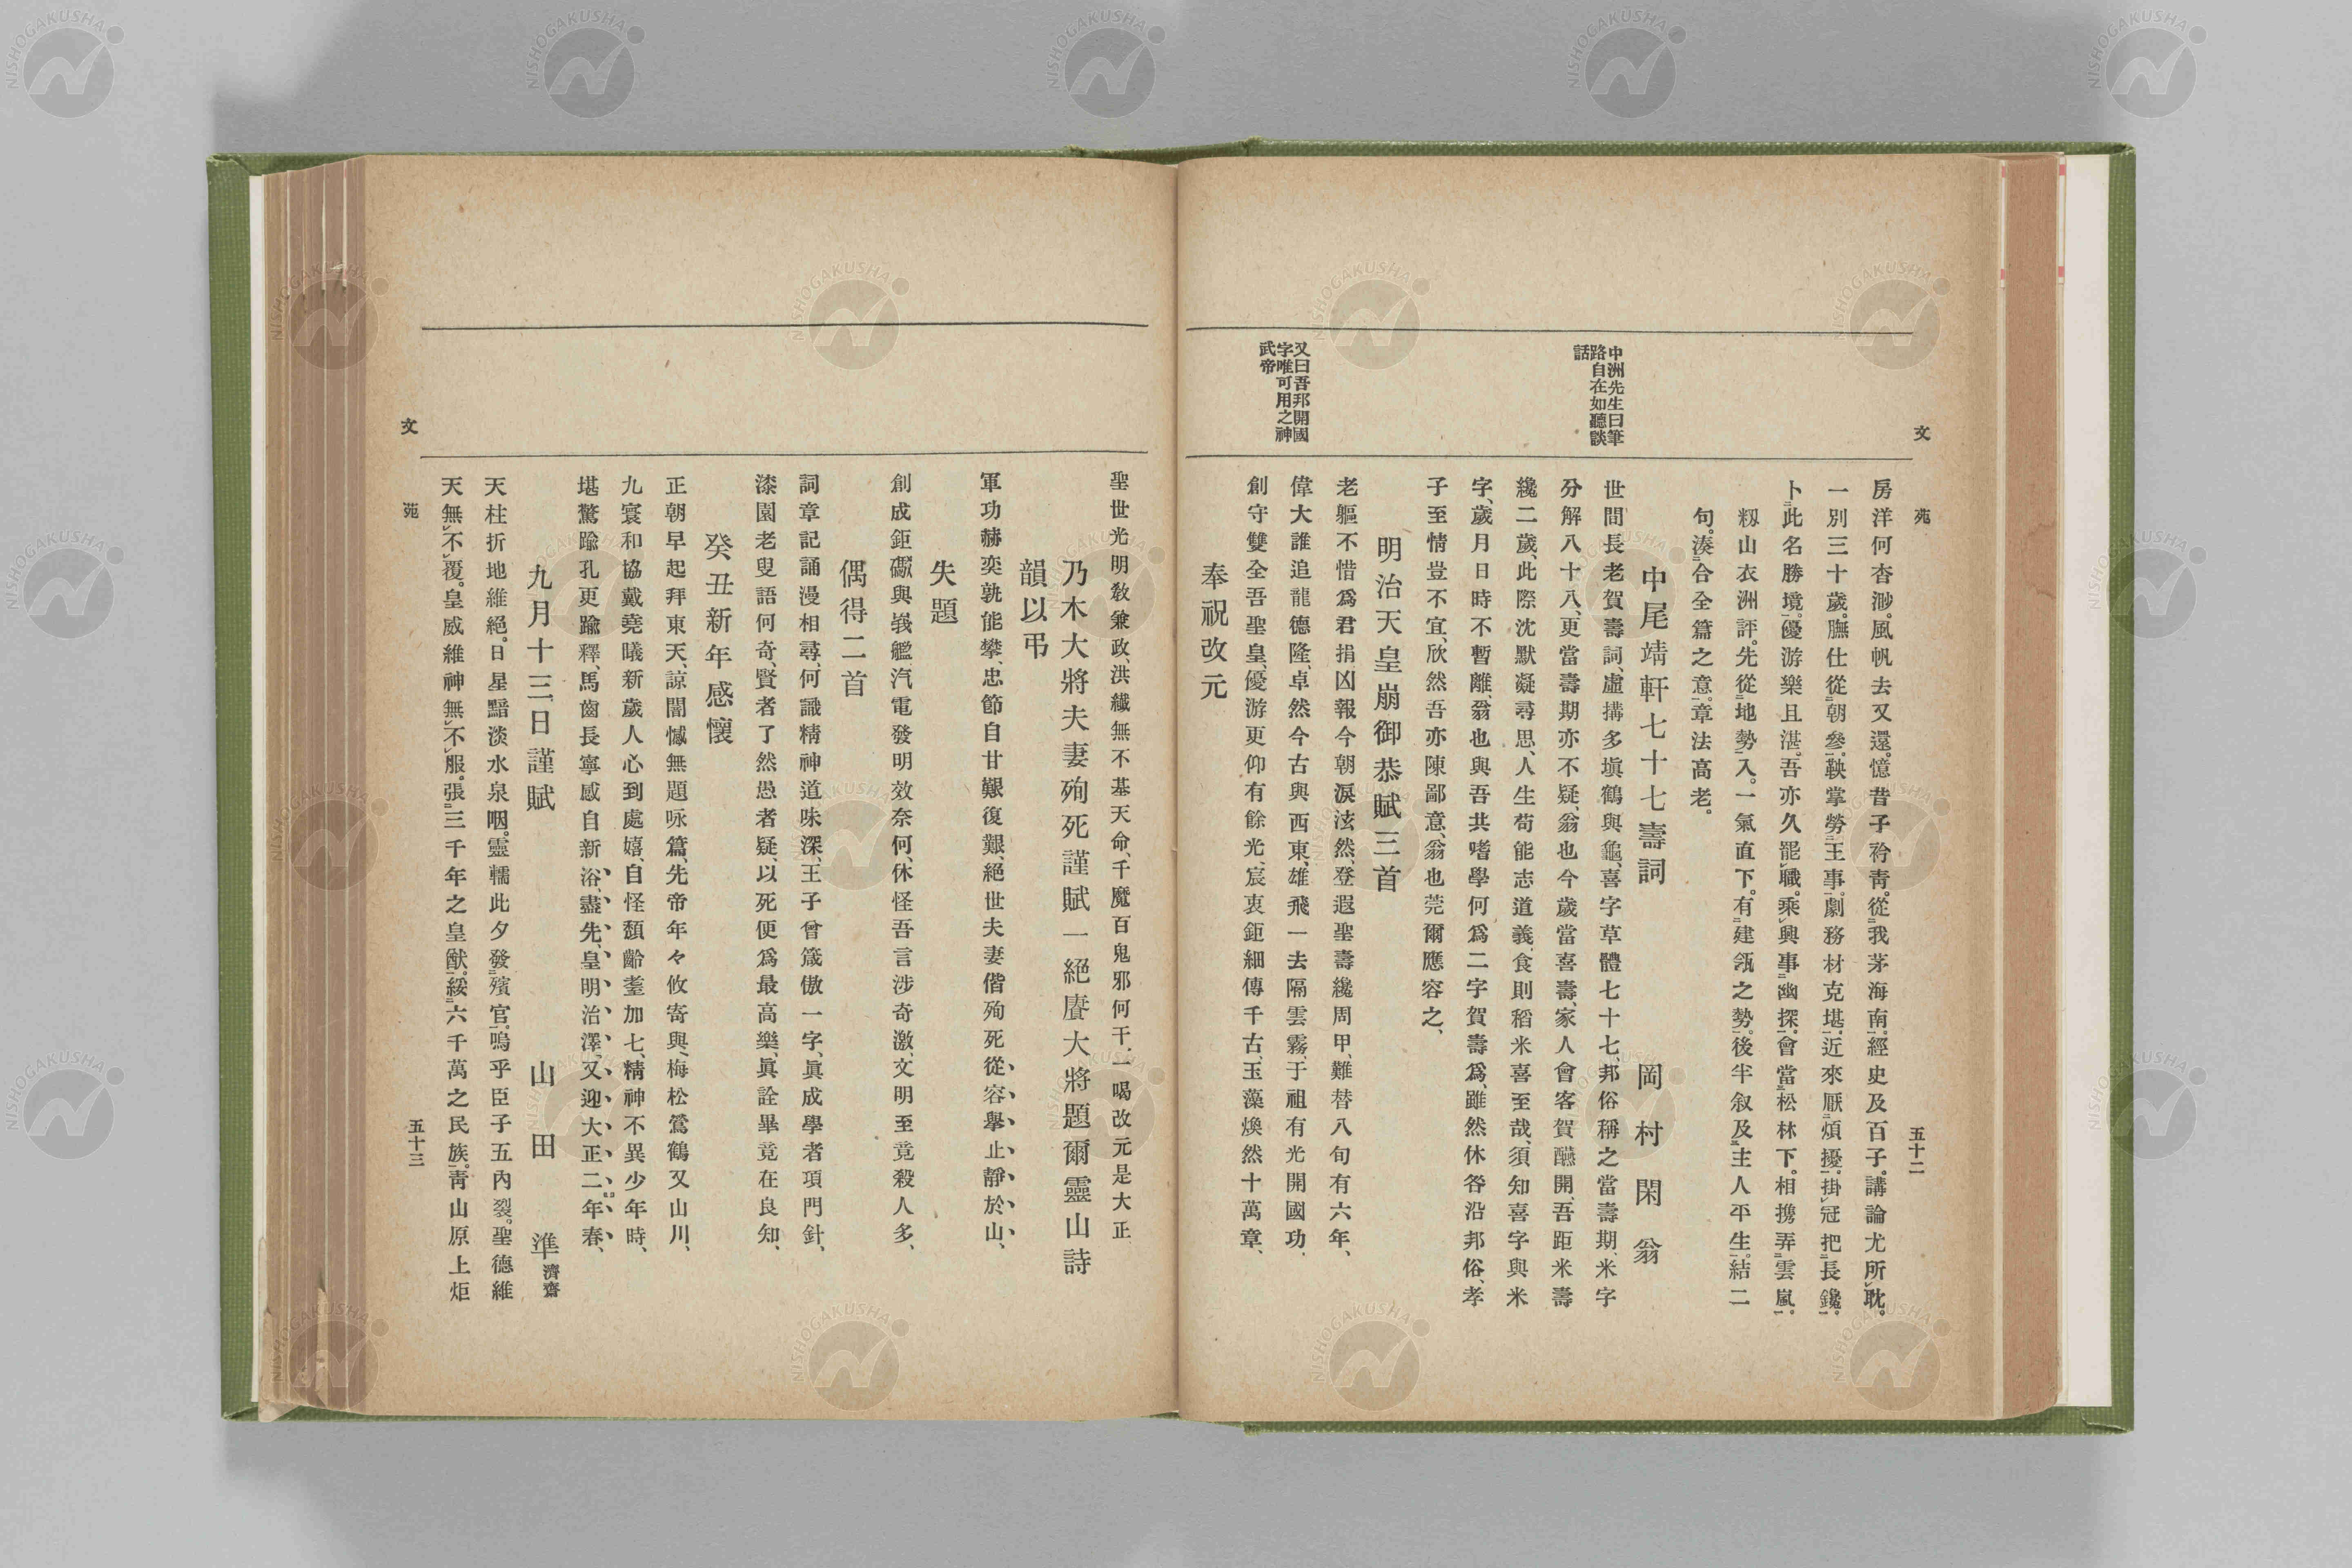 文苑
五十二
中洲先生曰筆
路自在如聽談
話
又曰吾邦開國
字唯可用之神
武帝
房洋何杳渺。風帆去又還。憶昔子衿靑。從我茅海南。經史及百子。講論尤所耽。
一別三十歲。膴仕從朝參。鞅掌勞王事。劇務材克堪。近來厭煩擾。掛冠把長鑱。
卜此名勝境。優游樂且湛。吾亦久罷職。乘興事幽探。會當松林下。相携弄雲嵐。
籾山衣洲評。先從地勢入。一氣直下。有建瓴之勢。後半叙及主人平生。結二
句。湊合全篇之意。章法高老。
中尾靖軒七十七壽詞
岡村閑翁
世間長老賀壽詞、虛搆多塡鶴與龜、喜字草體七十七、邦俗稱之當壽期、米字
分解八十八、更當壽期亦不疑、翁也今歲當喜壽、家人會客賀醼開、吾距米壽
纔二歲、此際沈默凝尋思、人生苟能志道義、食則稻米喜至哉、須知喜字與米
字、歲月日時不暫離、翁也與吾共嗜學何爲二字賀壽爲、雖然休咎沿邦俗、孝
子至情豈不宜、欣然吾亦陳鄙意、翁也莞爾應容之、
明治天皇崩御恭賦三首
老軀不惜爲君捐、凶報今朝淚泫然、登遐聖壽纔周甲、難替八句有六年、
偉大誰追龍德隆、卓然今古與西東、雄飛一去隔雲霧、于祖有光開國功、
創守雙全吾聖皇、優游更仰有餘光、宸衷鉅細傳千古、玉藻煥然十萬章、
奉祝改元
聖世光明敎兼政、洪纖無不基天命、千魔百鬼邪何干、一喝改元是大正
乃木大將夫妻殉死謹賦一絕賡大將題爾靈山詩
韻以弔
軍功赫奕孰能攀、忠節自甘艱復艱、絕世夫妻偕殉死從容擧止靜於山、
失題
創成鉅礮與戰艦、汽電發明效奈何、休怪吾言涉奇激、文明至竟殺人多、
偶得二首
詞章記誦漫相尋、何識精神道味深、王子曾箴傲一字、眞成學者項門針、
漆園老叟語何奇、賢者了然愚者疑、以死便爲最高樂、眞詮畢竟在良知、
癸丑新年感懷
正朝早起拜東天、諒闇憾無題咏篇、先帝年々攸寄與、梅松鶯鶴又山川、
九寰和協戴堯曦新歲人心到處嬉、自怪頽齡耋加七、精神不異少年時、
堪驚踰孔更踰釋、馬齒長寧感自新浴盡先皇明治澤又迎大正二年春、
九月十三日謹賦
山田準濟齋
天柱折地維絕。日星黯淡水泉咽。靈轜此夕發殯官。嗚乎臣子五內裂。聖德維
天無不覆。皇威維神無不服。張三千年之皇猷。綏六千萬之民族。靑山原上炬
文苑
五十三